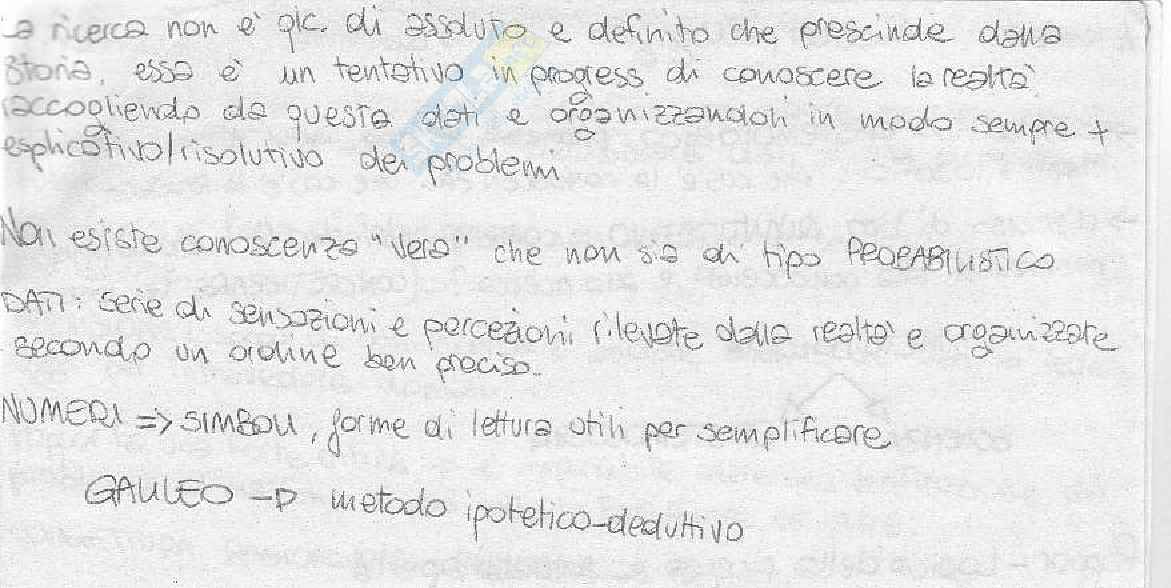 La ricerca non è qlc. di assoluto e definito che prescinde dalla
storia, essa è un tentativo in progress. di conoscere la realtà
raccogliendo da questa dati e organizzandoli in modo sempre +
esplicativo/risolutivo dei problemi
Non esiste conoscenza "vera" che non sia di tipo PROBABILISTICO
DATI: serie di sensazioni e percezioni rilevate dalla realtà e organizzate
secondo un ordine ben preciso.
NUMERI => SIMBOLI, forme di lettura utili per semplificare
GALILEO -> metodo ipotetico-deduttivo